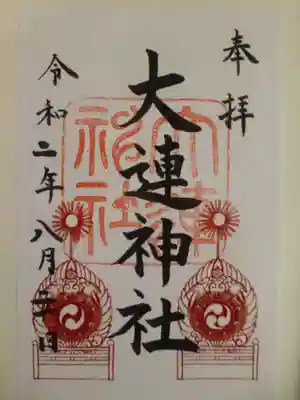 奉拝
大連神社
令和二年八月 日
大連
神社